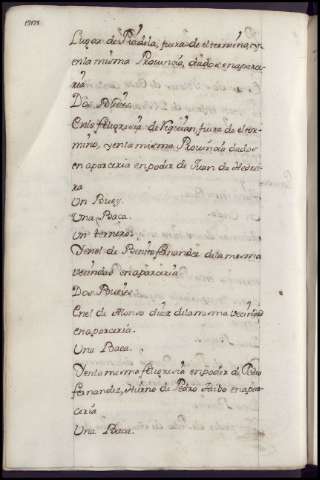 Lugar de Piadela, fuera de el termino, y
enta misma Provincia, dados en aparce
ria
Dos Bueies
En la feligresia de fuera de el ter
mino, y enta misma Provincia dados
en aparceria en poder de Juan de
ra
Un Buey
Una Baca
Un ternero
Y en el de Pedro fernandez de la misma
vecindad en aparceria
Dos Bueies
En el de Alonso diez de la misma vecindad
en aparceria
Una Baca
Y enta misma feligresia en poder de Pedro
fernandez, Yerno de Pedro faibo en apar
ceria
Una Baca